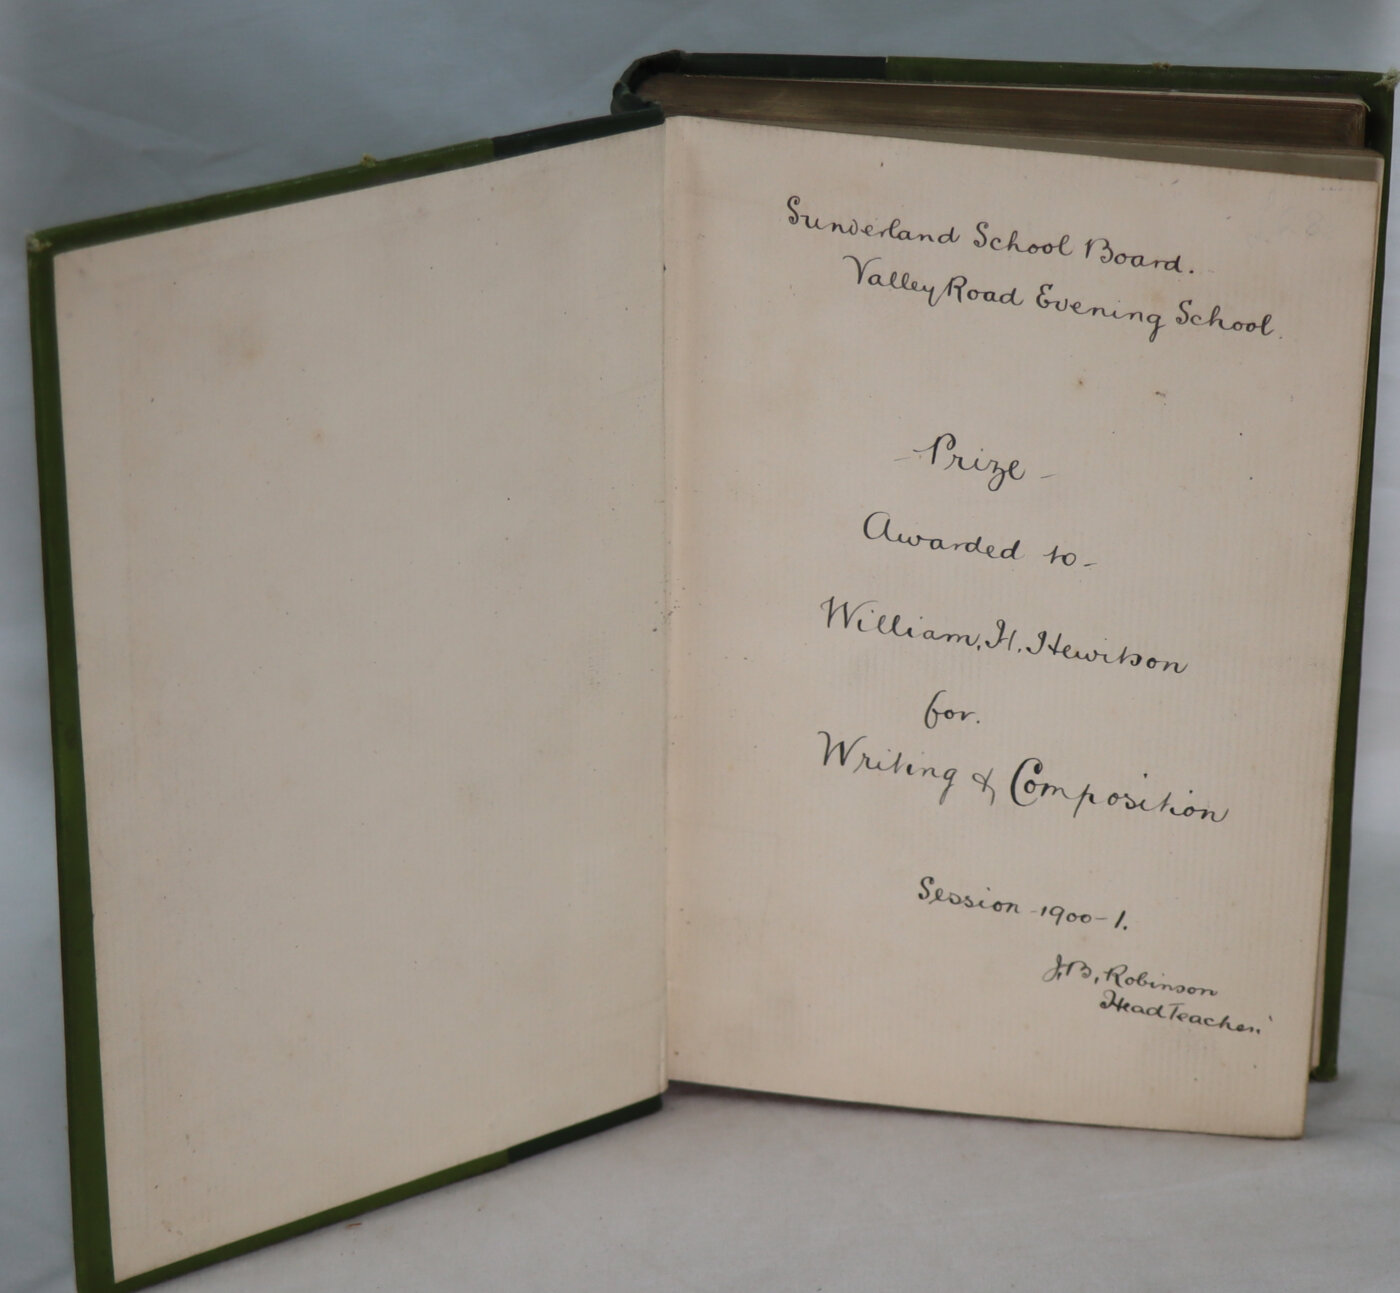 Sunderland School Board.
Valley Road Evening School.
- Prize -
Awarded to -
William, H. Hewitson
for.
Writing & Composition
Session - 1900 - 1.
J, B, Robinson
Head Teacher.